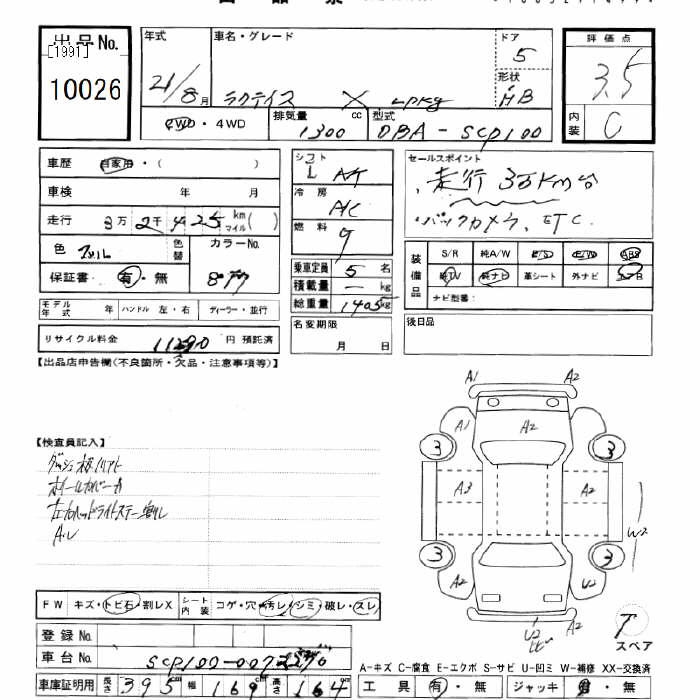 出品No.
[1991]
10026
年式
21/8月
車名・グレード
ラクティス X LPKg
ドア
5
形状
HB
評価点
3.5
内装
C
2WD・4WD
排気量
1300 cc
型式
DBA-SCP100
車歴
自家用・( )
車検 年 月
走行 3万2千425 km マイル( )
色
色替
カラーNo.
保証書 有・無
モデル年式 年 ハンドル 左・右 ディーラー・並行
リサイクル料金 11290 円 預託済
シフト
L A/T
冷房
A/C
燃料
g
乗車定員 5 名
積載量 ー kg
総重量 1405 kg
名変期限
月 日
セールスポイント
走行 3万Km台
バックカメラ、ETC
装備品
S/R 純A/W P/S P/W ABS
純TV 純ナビ 革シート 外ナビ
ナビ型番:
後日品
【出品店申告欄(不良箇所・欠品・注意事項等)】
【検査員記入】
ホイールカバーキズ
A・U
A1 A2
A1 A2
3 3
A3 A2 A2
W2
3 3
A2 U2
U2
スペア
FW キズ・トビ石・割レX
シート内装 コゲ・穴・汚レ・シミ・破レ・スレ
登録No.
車台No. SCP100-007
車庫証明用 長さ 395 cm 幅 169 cm 高さ 164
A-キズ C-腐食 E-エクボ S-サビ U-凹ミ W-補修 XX-交換済
工具 有・無 ジャッキ 有・無